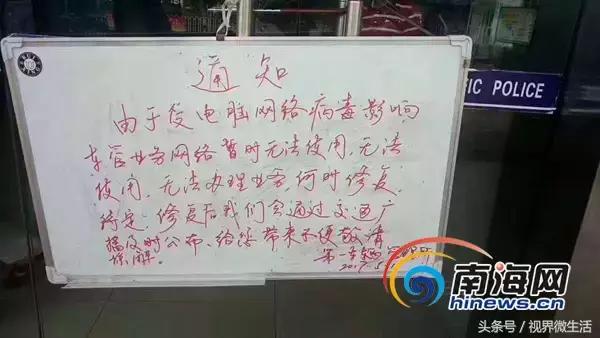 通知
由于受电脑网络病毒影响
车管业务网络暂时无法使用,无法
使用,无法办理业务,何时修复
待定,修复后我们会通过交通广
播及时公布,给您带来不便敬请
谅解。
第一车
2017.5
IC POLICE
南海网
hinews.cn
头条号/视界微生活